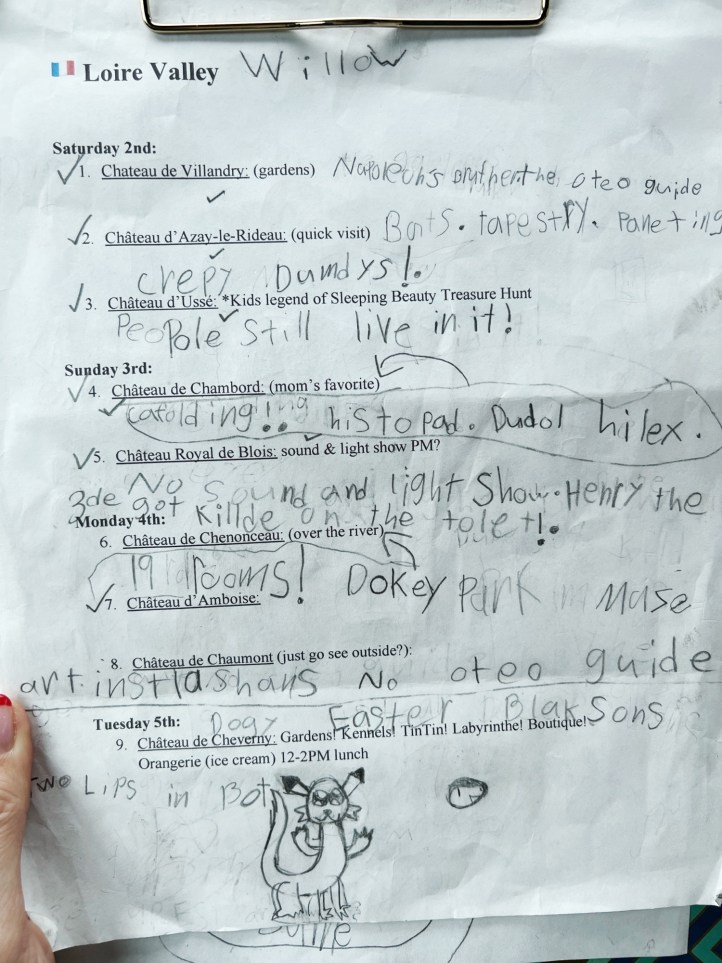 Loire Valley Willow
Saturday 2nd:
1. Chateau de Villandry: (gardens) oteo guide
2. Château d'Azay-le-Rideau: (quick visit) Bats. tapestry.
crepy Dumdys!.
3. Château d'Ussé: *Kids legend of Sleeping Beauty Treasure Hunt
PeoPole Still live in it!
Sunday 3rd:
4. Château de Chambord: (mom's favorite)
histo pad. Dudol hilex.
5. Château Royal de Blois: sound & light show PM?
No Sound and light Show. Henry the
3de got Killde on the tolet!.
Monday 4th:
6. Château de Chenonceau: (over the river)
19 rooms! Dokey Park in Muse
7. Château d'Amboise:
8. Château de Chaumont (just go see outside?):
art instlashans No oteo guide
Tuesday 5th: Dogy Easter Blak Sons
9. Château de Cheverny: Gardens! Kennels! TinTin! Labyrinthe! Boutique!
Orangerie (ice cream) 12-2PM lunch
Two Lips in Bot